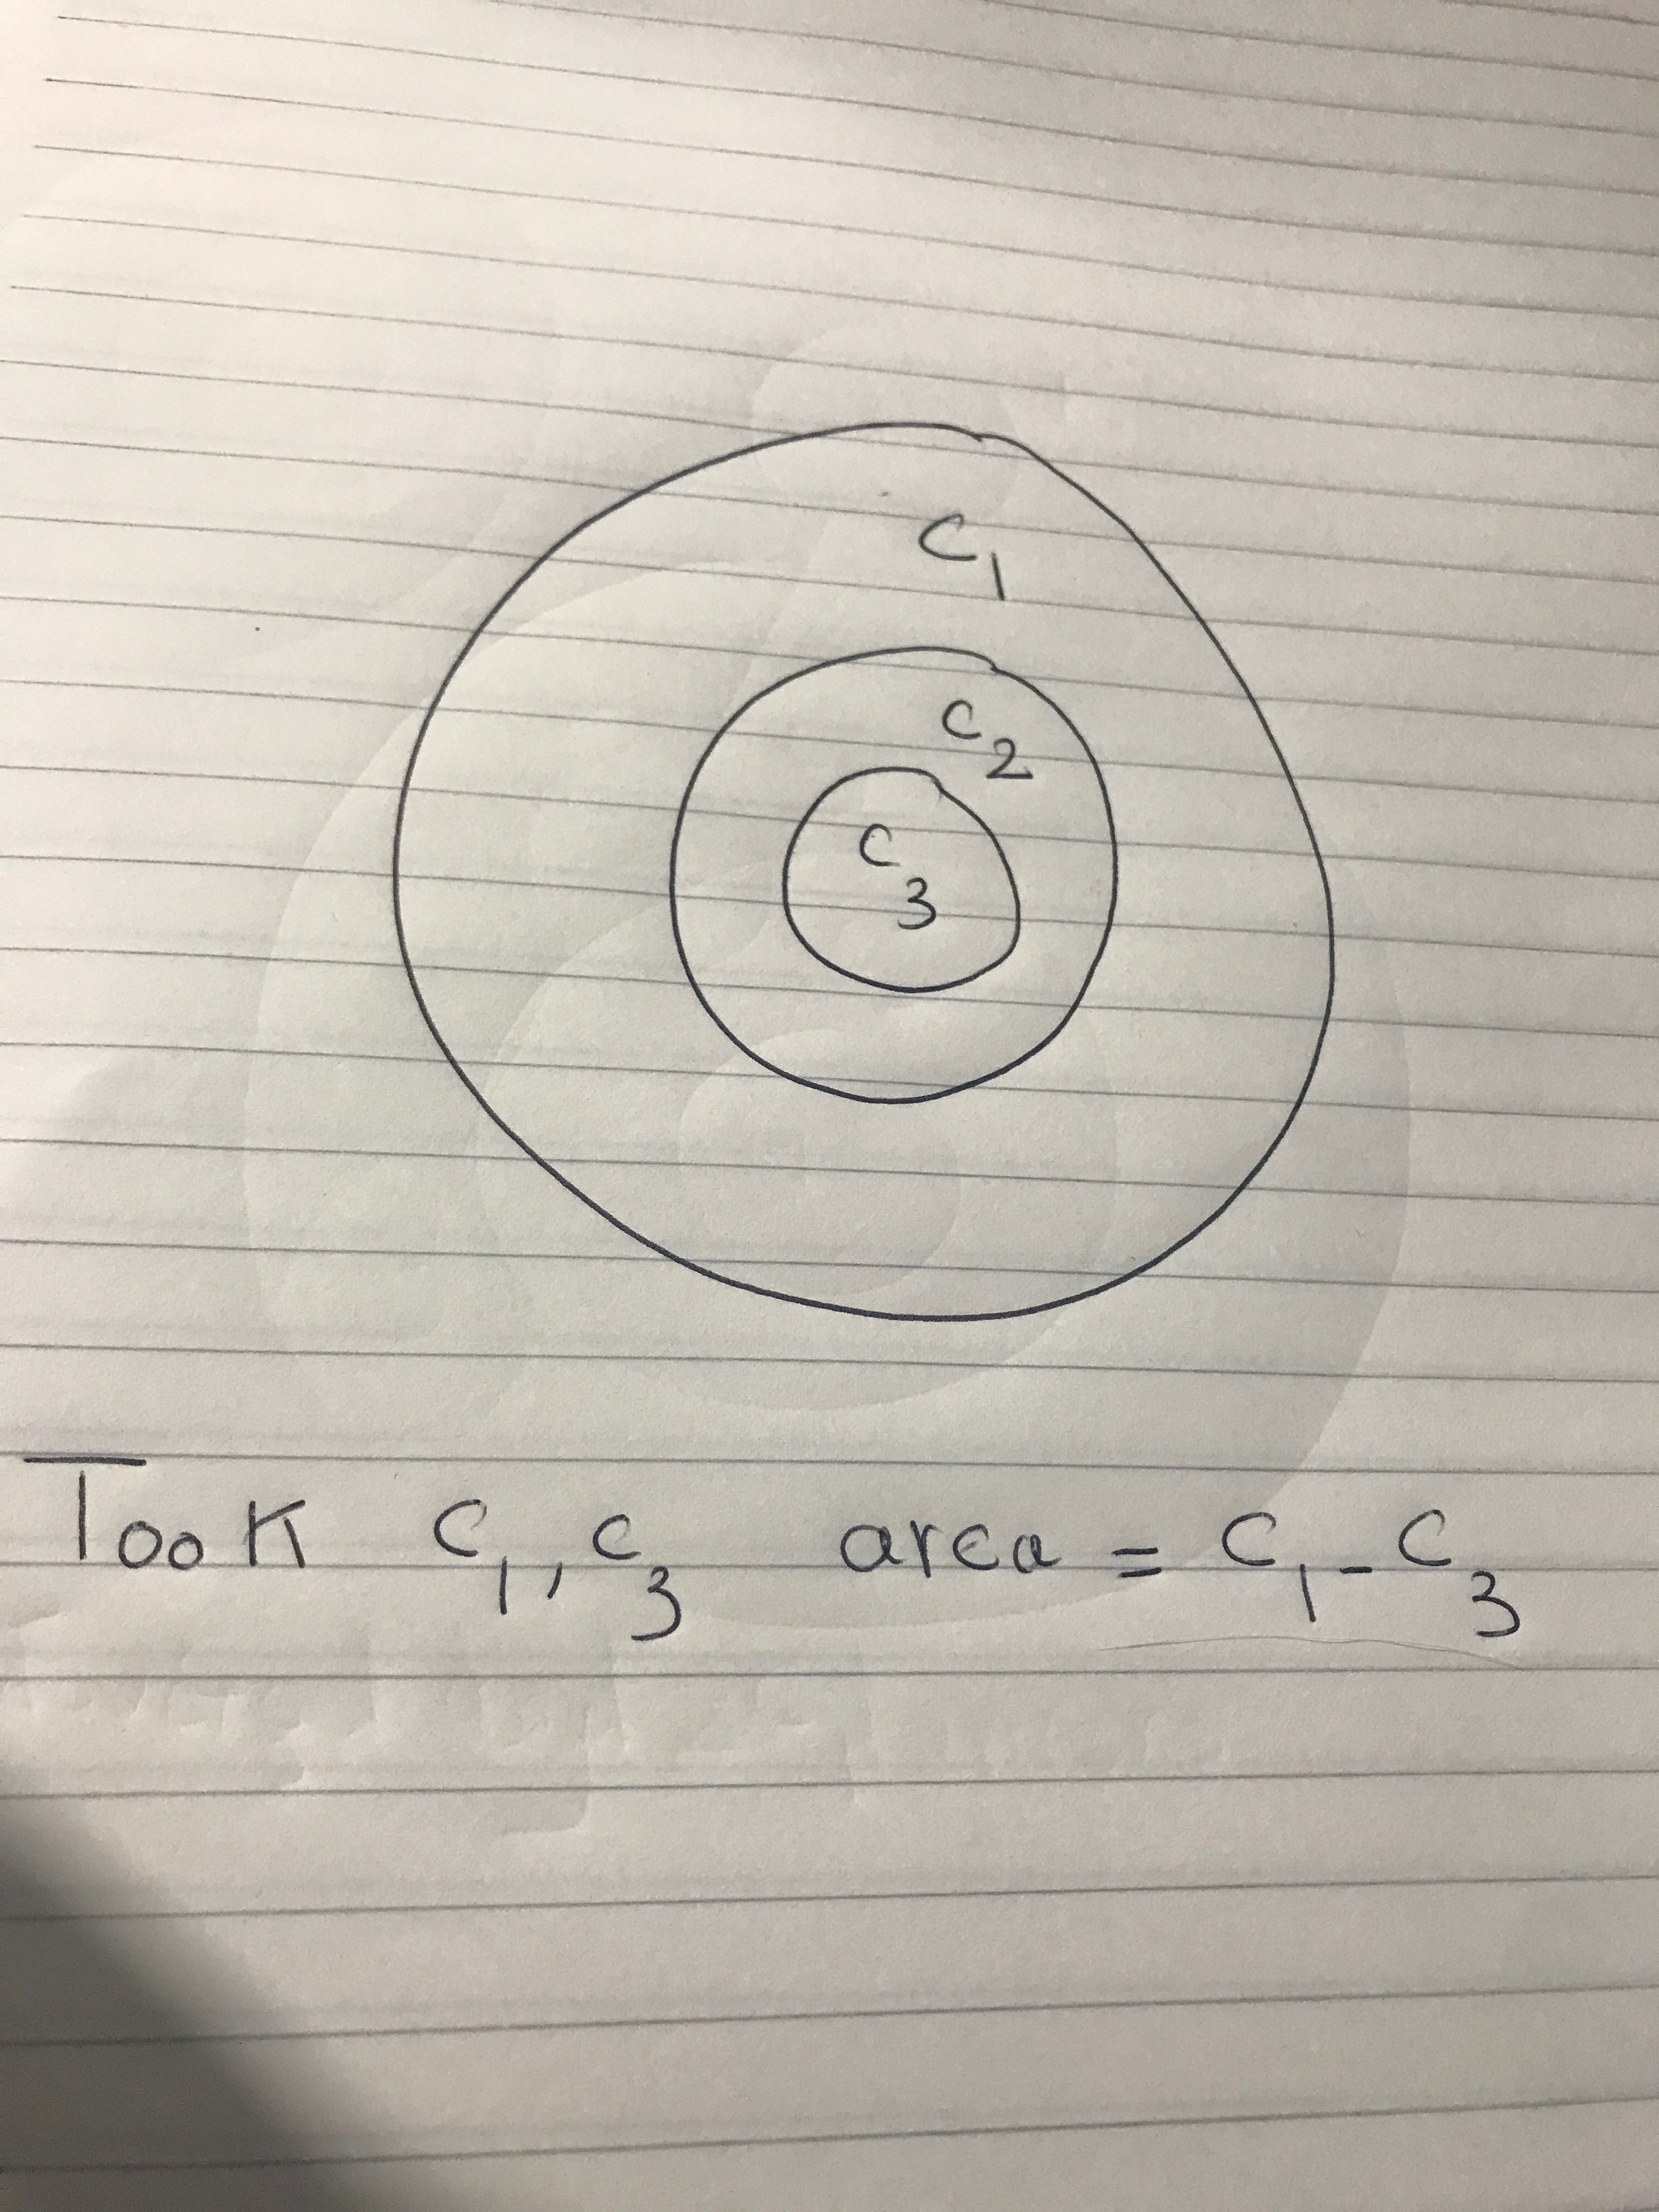 C1
C2
C3
Took C1, C3 area = C1 - C3